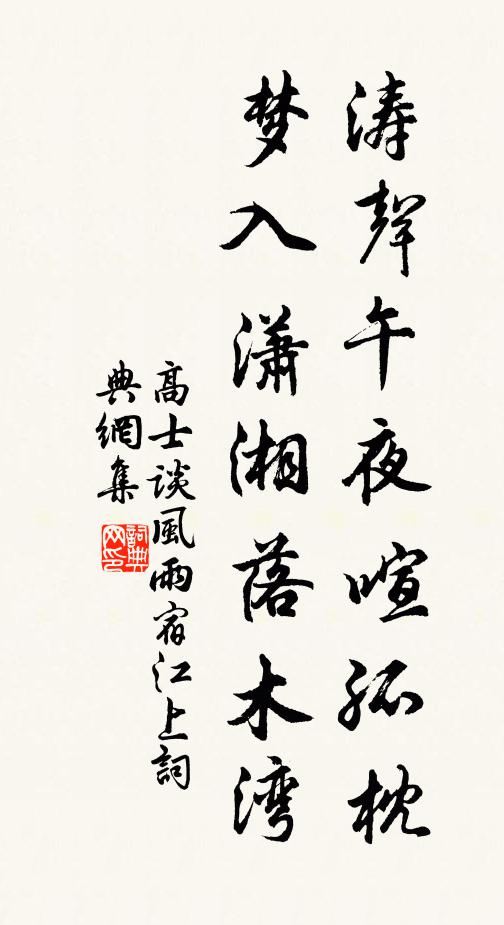 涛聲午夜喧孤枕
梦入瀟湘落木湾
高士談風雨宿江上詞
典網集
詞典
网印